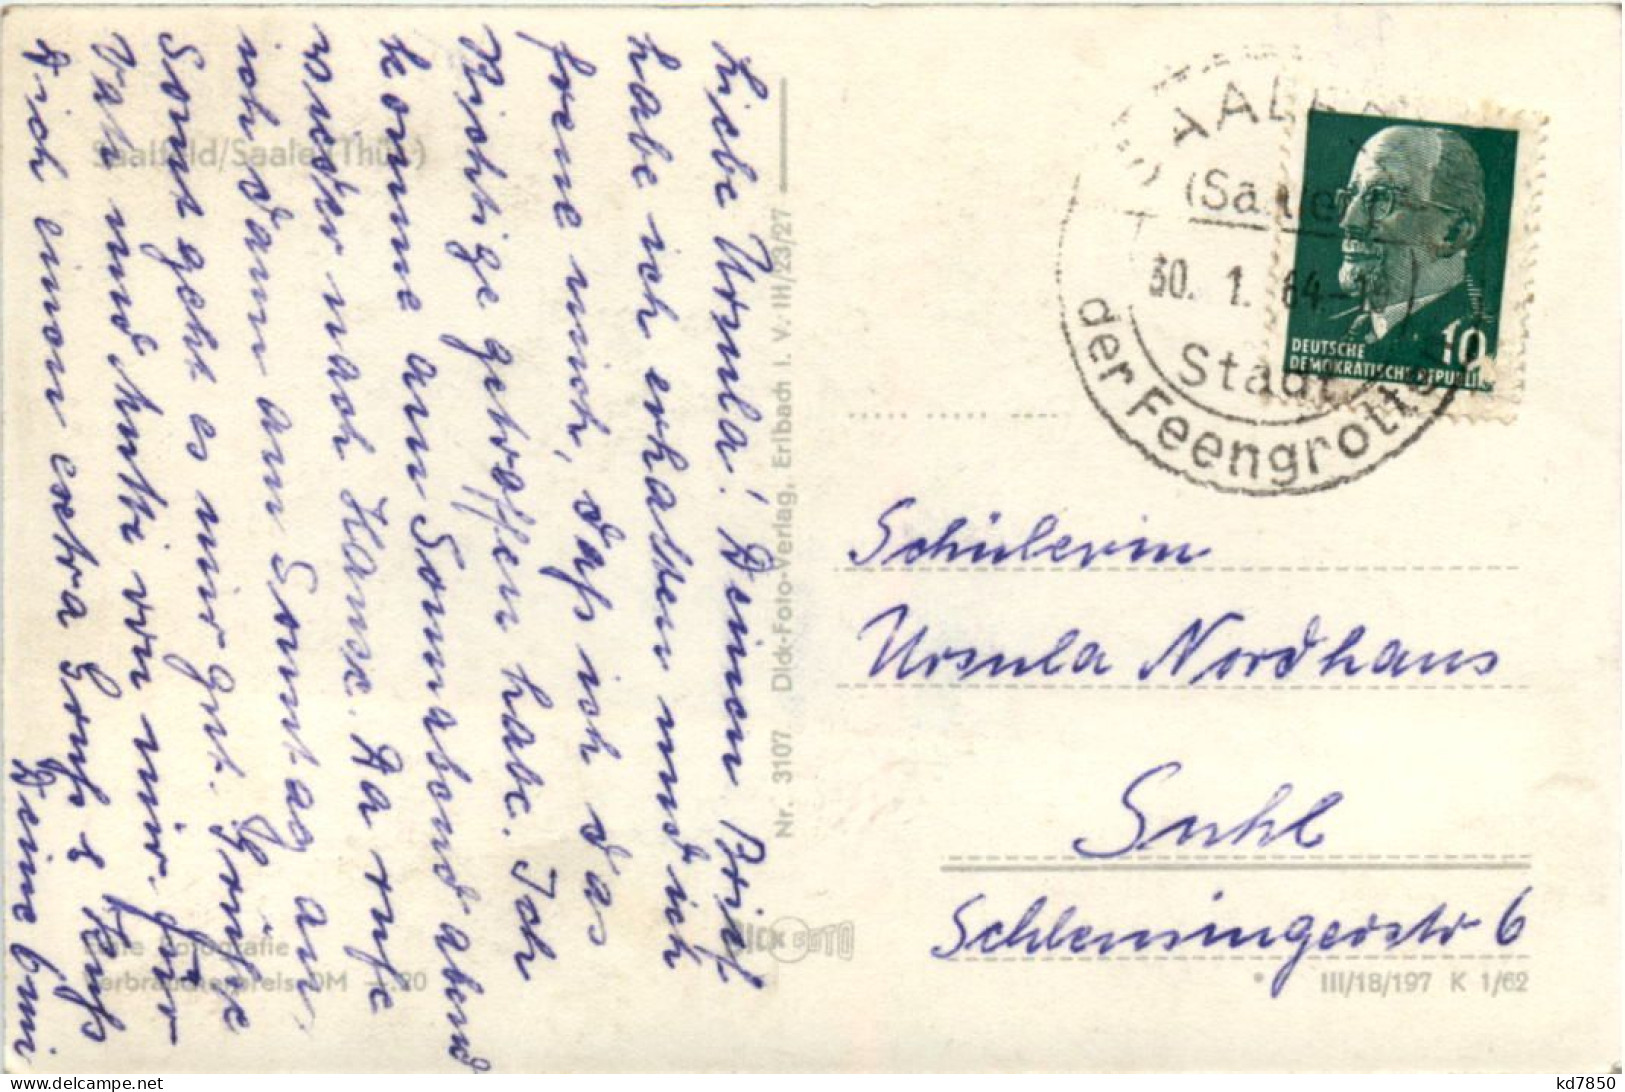 Liebe Ursula! Deinen Brief
habe ich erhalten und ich
freue mich, daß ich das
Richtige getroffen habe. Ich
komme am Sonnabend abend
wieder nach Hause. Da rufe
ich dann am Sonntag an.
Sonst geht es mir gut. Grüße
Vati und Mutti von mir. Für
Dich einen extra Gruß & Kuß
Deine Omi
Saalfeld/Saale (Thür.)
Echte Fotografie
Verbraucherpreis DM -.20
Nr. 3107 Dick-Foto-Verlag, Erlbach i. V. III/23/27
DICK FOTO
SAALFELD
(Saale)
30. 1. 64-18
Stadt
der Feengrotten
10
DEUTSCHE
DEMOKRATISCHE REPUBLIK
Schülerin
Ursula Nordhaus
Suhl
Schleusingerstr 6
* III/18/197 K 1/62
kd7850